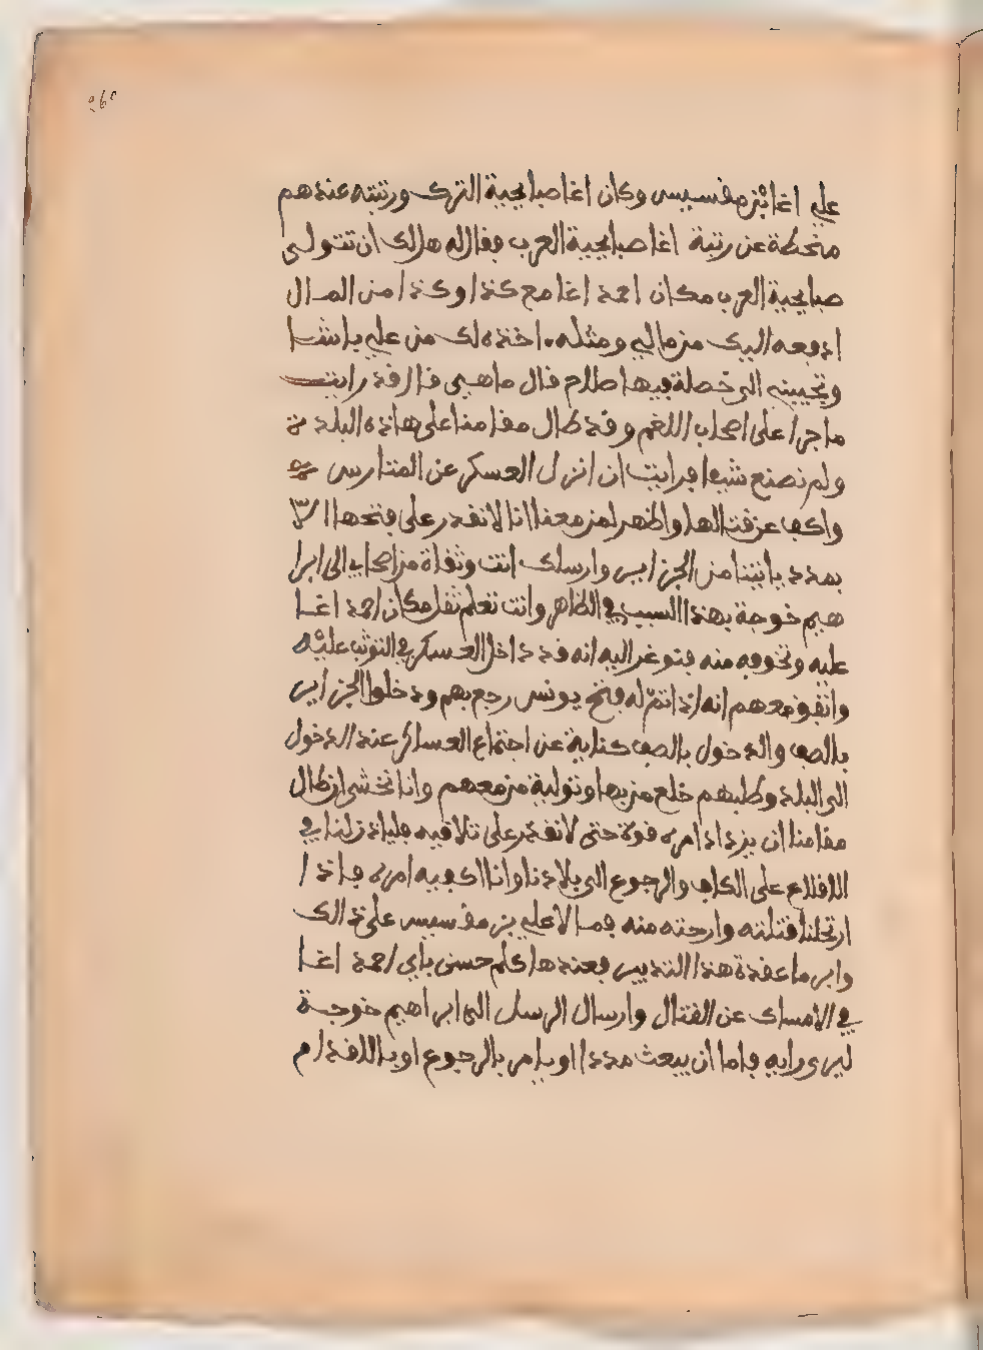 علي اغا بن مفسيس وكان اغا صبايحية الترك ورتبته عندهم
منحطة عن رتبة اغا صبايحية العرب فقال له هل لك ان تتولى
صبايحية العرب مكان احمد اغا مع كذا وكذا من المال
ادفعه اليك من مالي ومثله اخذه لك من علي باشا
وتجيبني الى خصلة فيها صلاح قال ما هي قال قد رايت
ما جرا على اصحاب اللغم وقد طال مقامنا على هاذه البلد
ولم نصنع شيئا فرايت ان انزل العسكر عن المتارس
واكف عن قتالها واظهر لمن معنا انا لا نقدر على فتحها الا
بمدد ياتينا من الجزاير وارسلك انت وثقاة من اصحابي الى ابرا
هيم خوجة بهذا السبب في الظاهر وانت تعلم ثقل مكان احمد اغا
عليه وتخوفه منه فتوغر اليه انه قد داخل العسكر في التوثب عليه
واتفق معهم انه اذا تم له فتح يونس رجع بهم ودخلوا الجزاير
بالصف والدخول بالصف كناية عن اجتماع العساكر عند الدخول
الى البلد وطلبهم خلع من بها وتولية من معهم وانا نخشى ان طال
مقامنا ان يزداد امره قوة حتى لا نقدر على تلافيه فلياذن لنا في
الاقلاع على الكاف والرجوع الى بلادنا وانا اكفيه امره فاذا
ارتحلنا قتلته وارحته منه فمالا علي بن مفسيس على ذالك
وابرما عقدة هذا التدبير فعندها كلم حسن باي احمد اغا
في الامساك عن القتال وارسال الرسل الى ابراهيم خوجة
ليرى رايه فاما ان يبعث مددا او يامر بالرجوع او بالاقدام